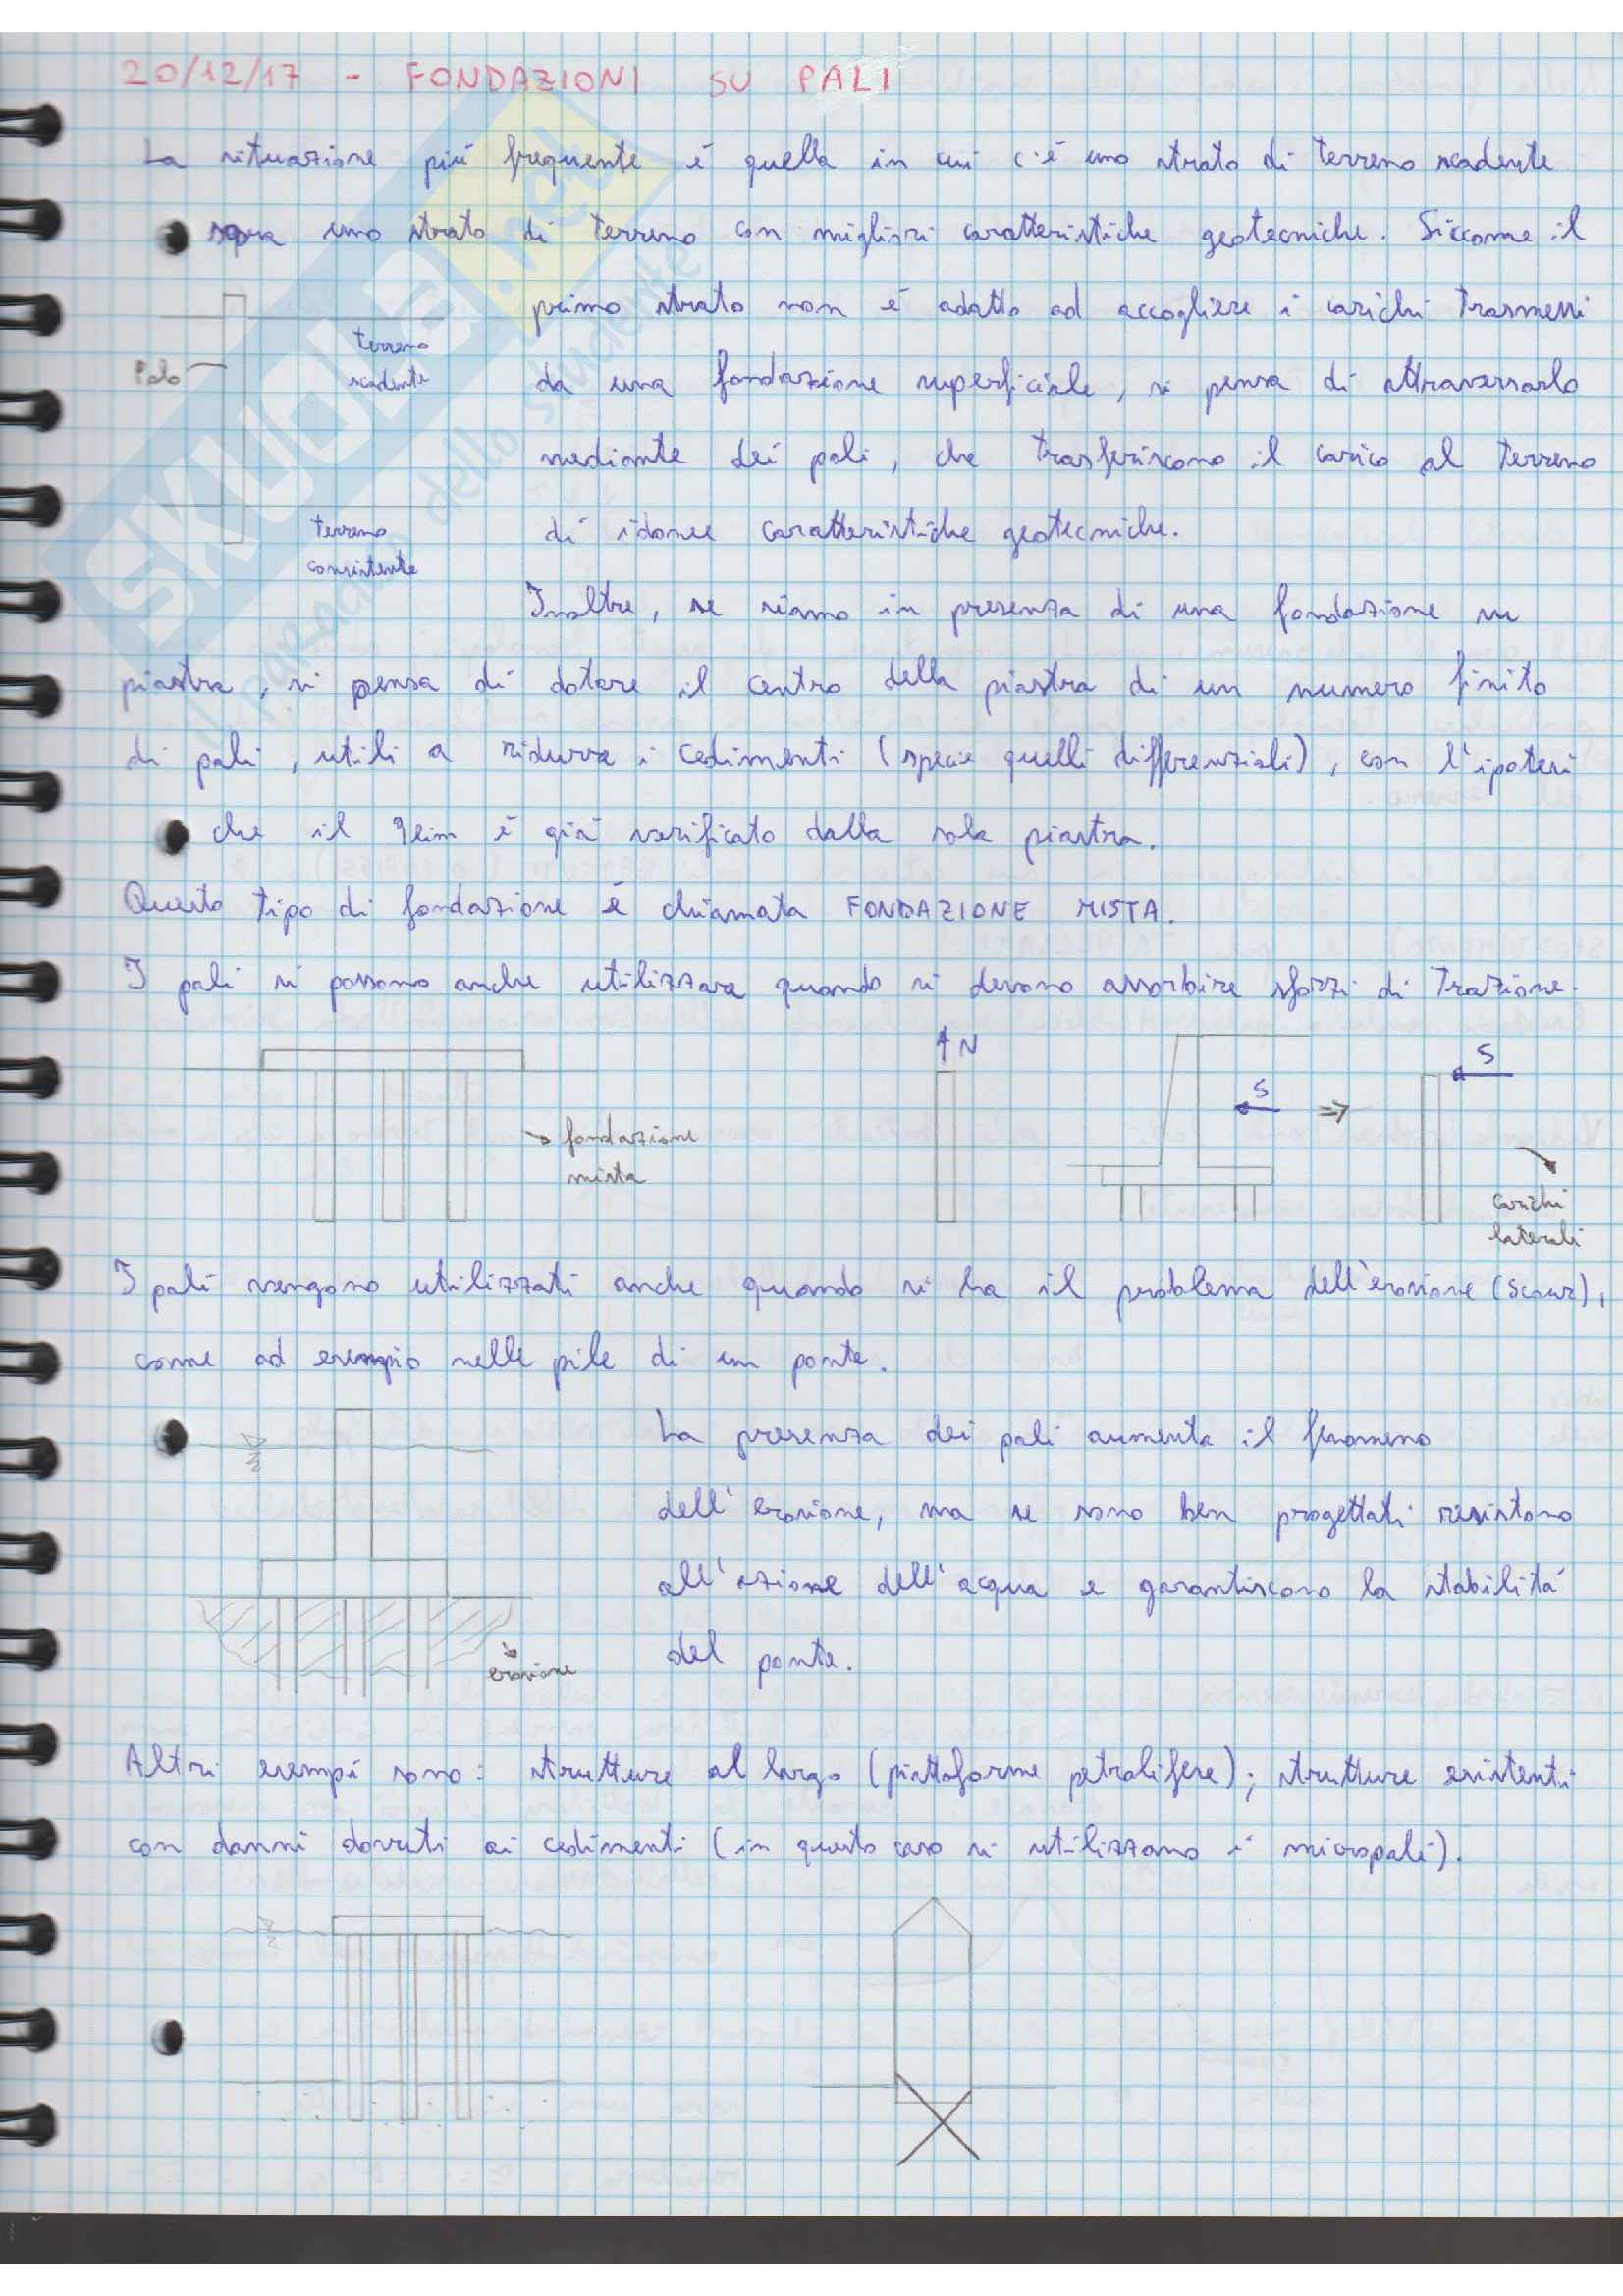 20/12/17 - FONDAZIONI SU PALI
La situazione più frequente è quella in cui c'è uno strato di terreno scadente
sopra uno strato di terreno con migliori caratteristiche geotecniche. Siccome il
primo strato non è adatto ad accogliere i carichi trasmessi
da una fondazione superficiale, si pensa di attraversarlo
mediante dei pali, che trasferiscono il carico al terreno
di idonee caratteristiche geotecniche.
Palo
terreno
scadente
terreno
consistente
Inoltre, se siamo in presenza di una fondazione su
piastra, si pensa di dotare il centro della piastra di un numero finito
di pali, utili a ridurre i cedimenti (specie quelli differenziali), con l'ipotesi
che il qlim è già verificato dalla sola piastra.
Questo tipo di fondazione è chiamata FONDAZIONE MISTA.
I pali si possono anche utilizzare quando si devono assorbire sforzi di trazione.
fondazione
mista
N
S
=>
S
carichi
laterali
I pali vengono utilizzati anche quando si ha il problema dell'erosione (scour),
come ad esempio nelle pile di un ponte.
La presenza dei pali aumenta il fenomeno
dell'erosione, ma se sono ben progettati resistono
all'azione dell'acqua e garantiscono la stabilità
del ponte.
erosione
Altri esempi sono: strutture al largo (piattaforme petrolifere); strutture esistenti
con danni dovuti ai cedimenti (in questo caso si utilizzano i micropali).
SKUOLA.net
il paradiso dello studente